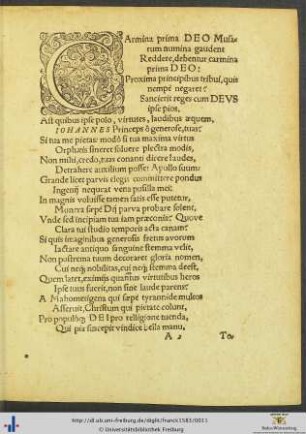 Armina prima DEO Musa-
rum numina gaudent
Reddere, debentur carmina
prima DEO:
Proxima principibus tribui, quis
nempè negaret?
Sancierit reges cum DEVS
ipse pios,
Ast quibus ipse polo, virtutes, laudibus æquem,
IOHANNES Princeps ô generose, tuas?
Si tua me pietas: modò si tua maxima virtus
Orphæis sineret soluere plectra modis,
Non mihi, credo, tuas conanti dicere laudes,
Detrahere auxilium posset Apollo suum:
Grande licet parvis elegis committere pondus
Ingenij nequeat vena pusilla mei:
In magnis voluisse tamen satis esse putetur,
Munera sæpè Dij parva probare solent,
Vnde sed incipiam tua iam præconia? Quove
Clara tui studio temporis acta canam?
Si quis imaginibus generosis fretus avorum
Iactare antiquo sanguine stemma velit,
Non postrema tuum decoraret gloria nomen,
Cui neq; nobilitas, cui neq; stemma deest,
Quem latet, eximijs quantus virtutibus heros
Ipse tuus fuerit, non sine laude parens?
A Mahometigena qui sæpè tyrannide multos
Asseruit, Christum qui pietate colunt,
Pro populoq; DEI pro religione tuenda,
Qui pia suscepit vindice bella manu,
A 2 To-
http://dl.ub.uni-freiburg.de/diglit/franck1583/0031
© Universitätsbibliothek Freiburg
Baden-Württemberg